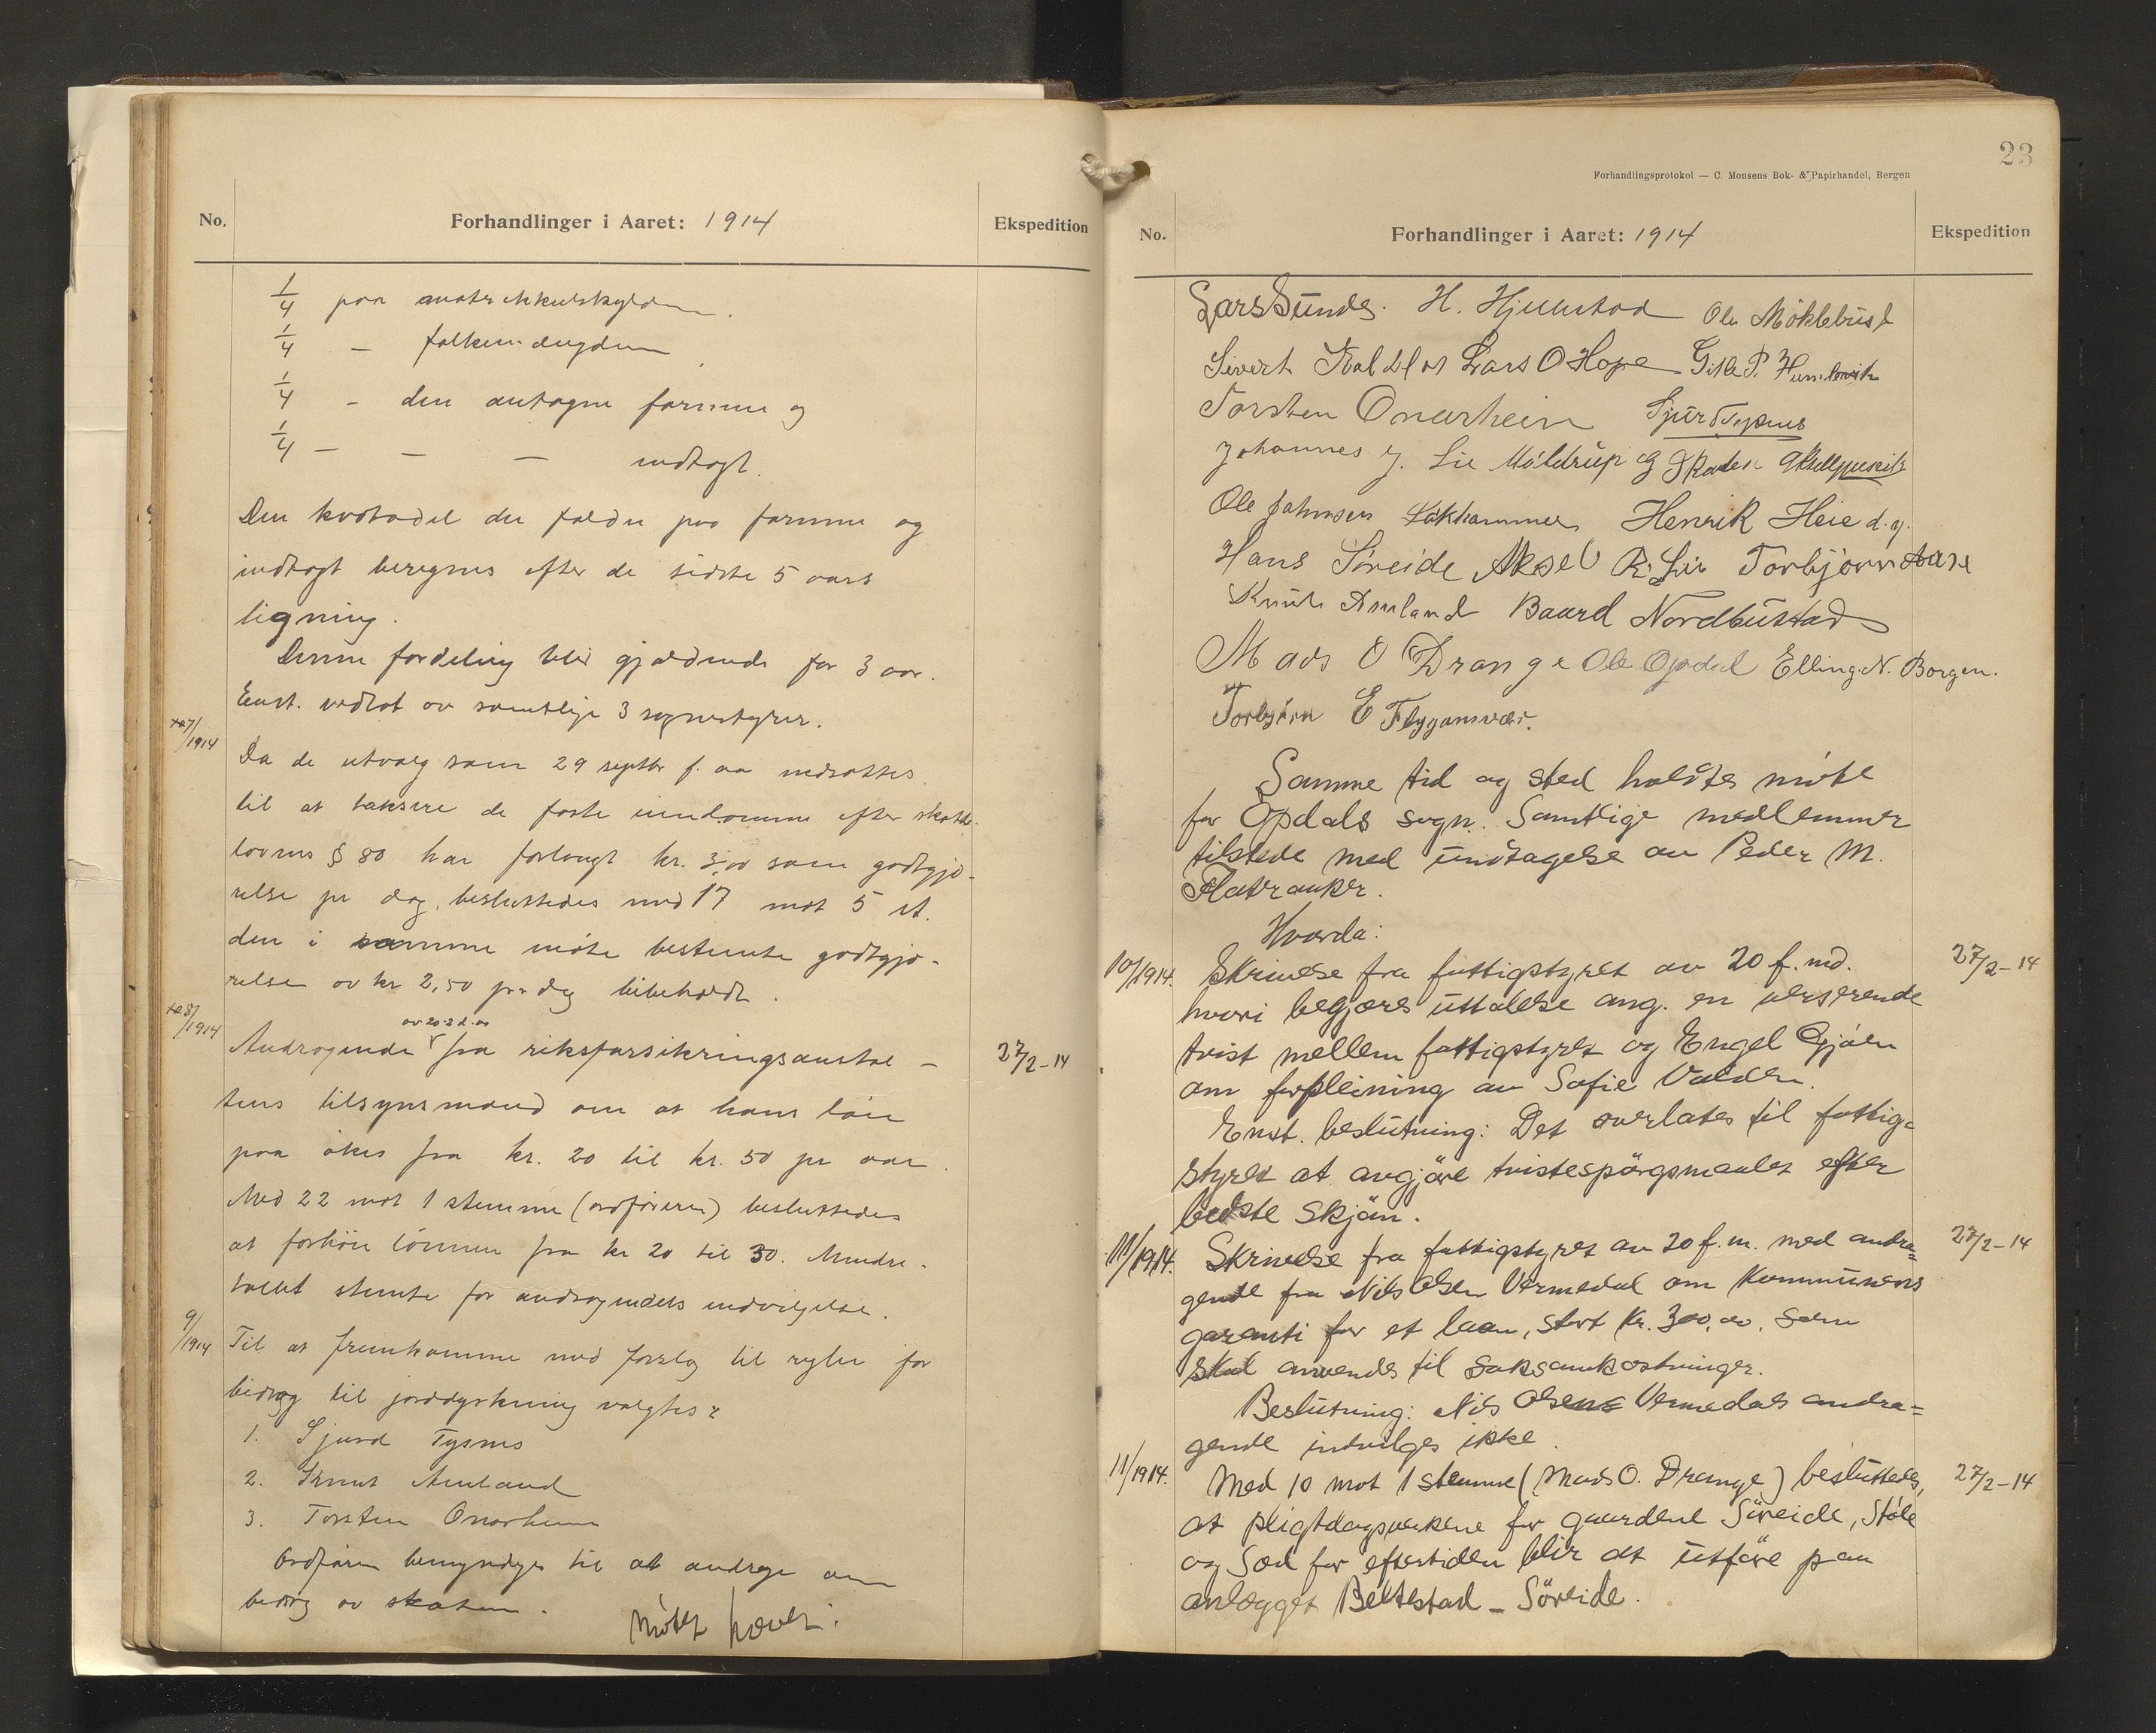 No.
Forhandlinger i Aaret: 1914
Ekspedition
1/4 paa matrikkulskylden.
1/4 – folkemængden
1/4 – den antagne formue og
1/4 – – – indtægt.
Den kvotadel der falder paa formue og
indtægt beregnes efter de sidste 5 aars
ligning.
Denne fordeling blir gjældende for 3 aar.
Enst. vedtat av samtlige 3 sognestyrer.
7/1914
Da de utvalg som 29 septbr f. aa nedsattes
til at taksere de faste eiendomme efter skatte-
lovens § 80 har forlangt kr. 3,00 som godtgjø-
relse pr dag, besluttedes med 17 mot 5 st.
den i samme møte bestemte godtgjø-
relse av kr 2,50 pr dag bibeholdt.
8/1914
Andragende av 20-2 d. aa fra riksforsikringsanstal-
tens tilsynsmænd om at hans løn
maa økes fra kr. 20 til kr. 50 pr aar.
27/2-14
Med 22 mot 1 stemme (ordføreren) besluttedes
at forhøie lønnen fra kr 20 til 30. Mindre-
tallet stemte for andragendets indvilgelse.
9/1914
Til at fremkomme med forslag til regler for
bidrag til jorddyrkning valgtes:
1. Sjurd Tysnes
2. Knut Amland
3. Torsten Onarheim
Ordføreren bemyndiges til at andrage om
bidrag av staten.
Møtet hævet.
23
Forhandlingsprotokol — C. Monsens Bok- & Papirhandel, Bergen
No.
Forhandlinger i Aaret: 1914
Ekspedition
Lars Sunde. H. Hjelmstad Ole Møklebust
Sivert Lars O Hope Gitle P. Humlevik
Torsten Onarheim Sjurd Tysnes
Johannes J. Lie Møldrup
Ole Johnsen Løkhammer Henrik Heie d.y.
Hans Søreide Aksel R. Lie Torbjørn Aase
Knut Amland Baard Nordbustad
Mads O Drange Ole Opdal Elling N. Borgen.
Torbjørn E Flygansvær.
Samme tid og sted holdtes møte
for Opdals sogn. Samtlige medlemmer
tilstede med undtagelse av Peder M.
Flatraaker.
Hvorda:
10/1914.
Skrivelse fra fattigstyret av 20 f. md.
27/2-14
hvori begjæres uttalelse ang. en verserende
tvist mellem fattigstyret og Engel Gjøen
om forpleining av Sofie Valden.
Enst. beslutning: Det overlates til fattig-
styret at avgjøre tvistespørgsmaalet efter
bedste skjøn.
11/1914.
Skrivelse fra fattigstyret av 20 f. m. med andra-
27/2-14
gende fra Nils Olsen Vermedal om Kommunens
garanti for et laan, stort Kr. 300,00, som
skal anvendes til saksomkostninger.
Beslutning: Nils Olsens Vermedals andra-
gende indvilges ikke.
11/1914.
Med 10 mot 1 stemme (Mads O. Drange) besluttedes,
27/2-14
at pligtdagsverkene for gaardene Søreide, Støle
og Sæd for eftertiden blir at utføre paa
anlægget Beltestad – Søreide.